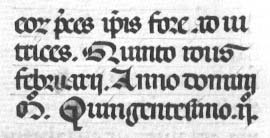 eor p̄ces ip̄is fore . adiu
trices . Quinto idus
februarii . Anno domini
M̊ . Quingentesimo . ij .